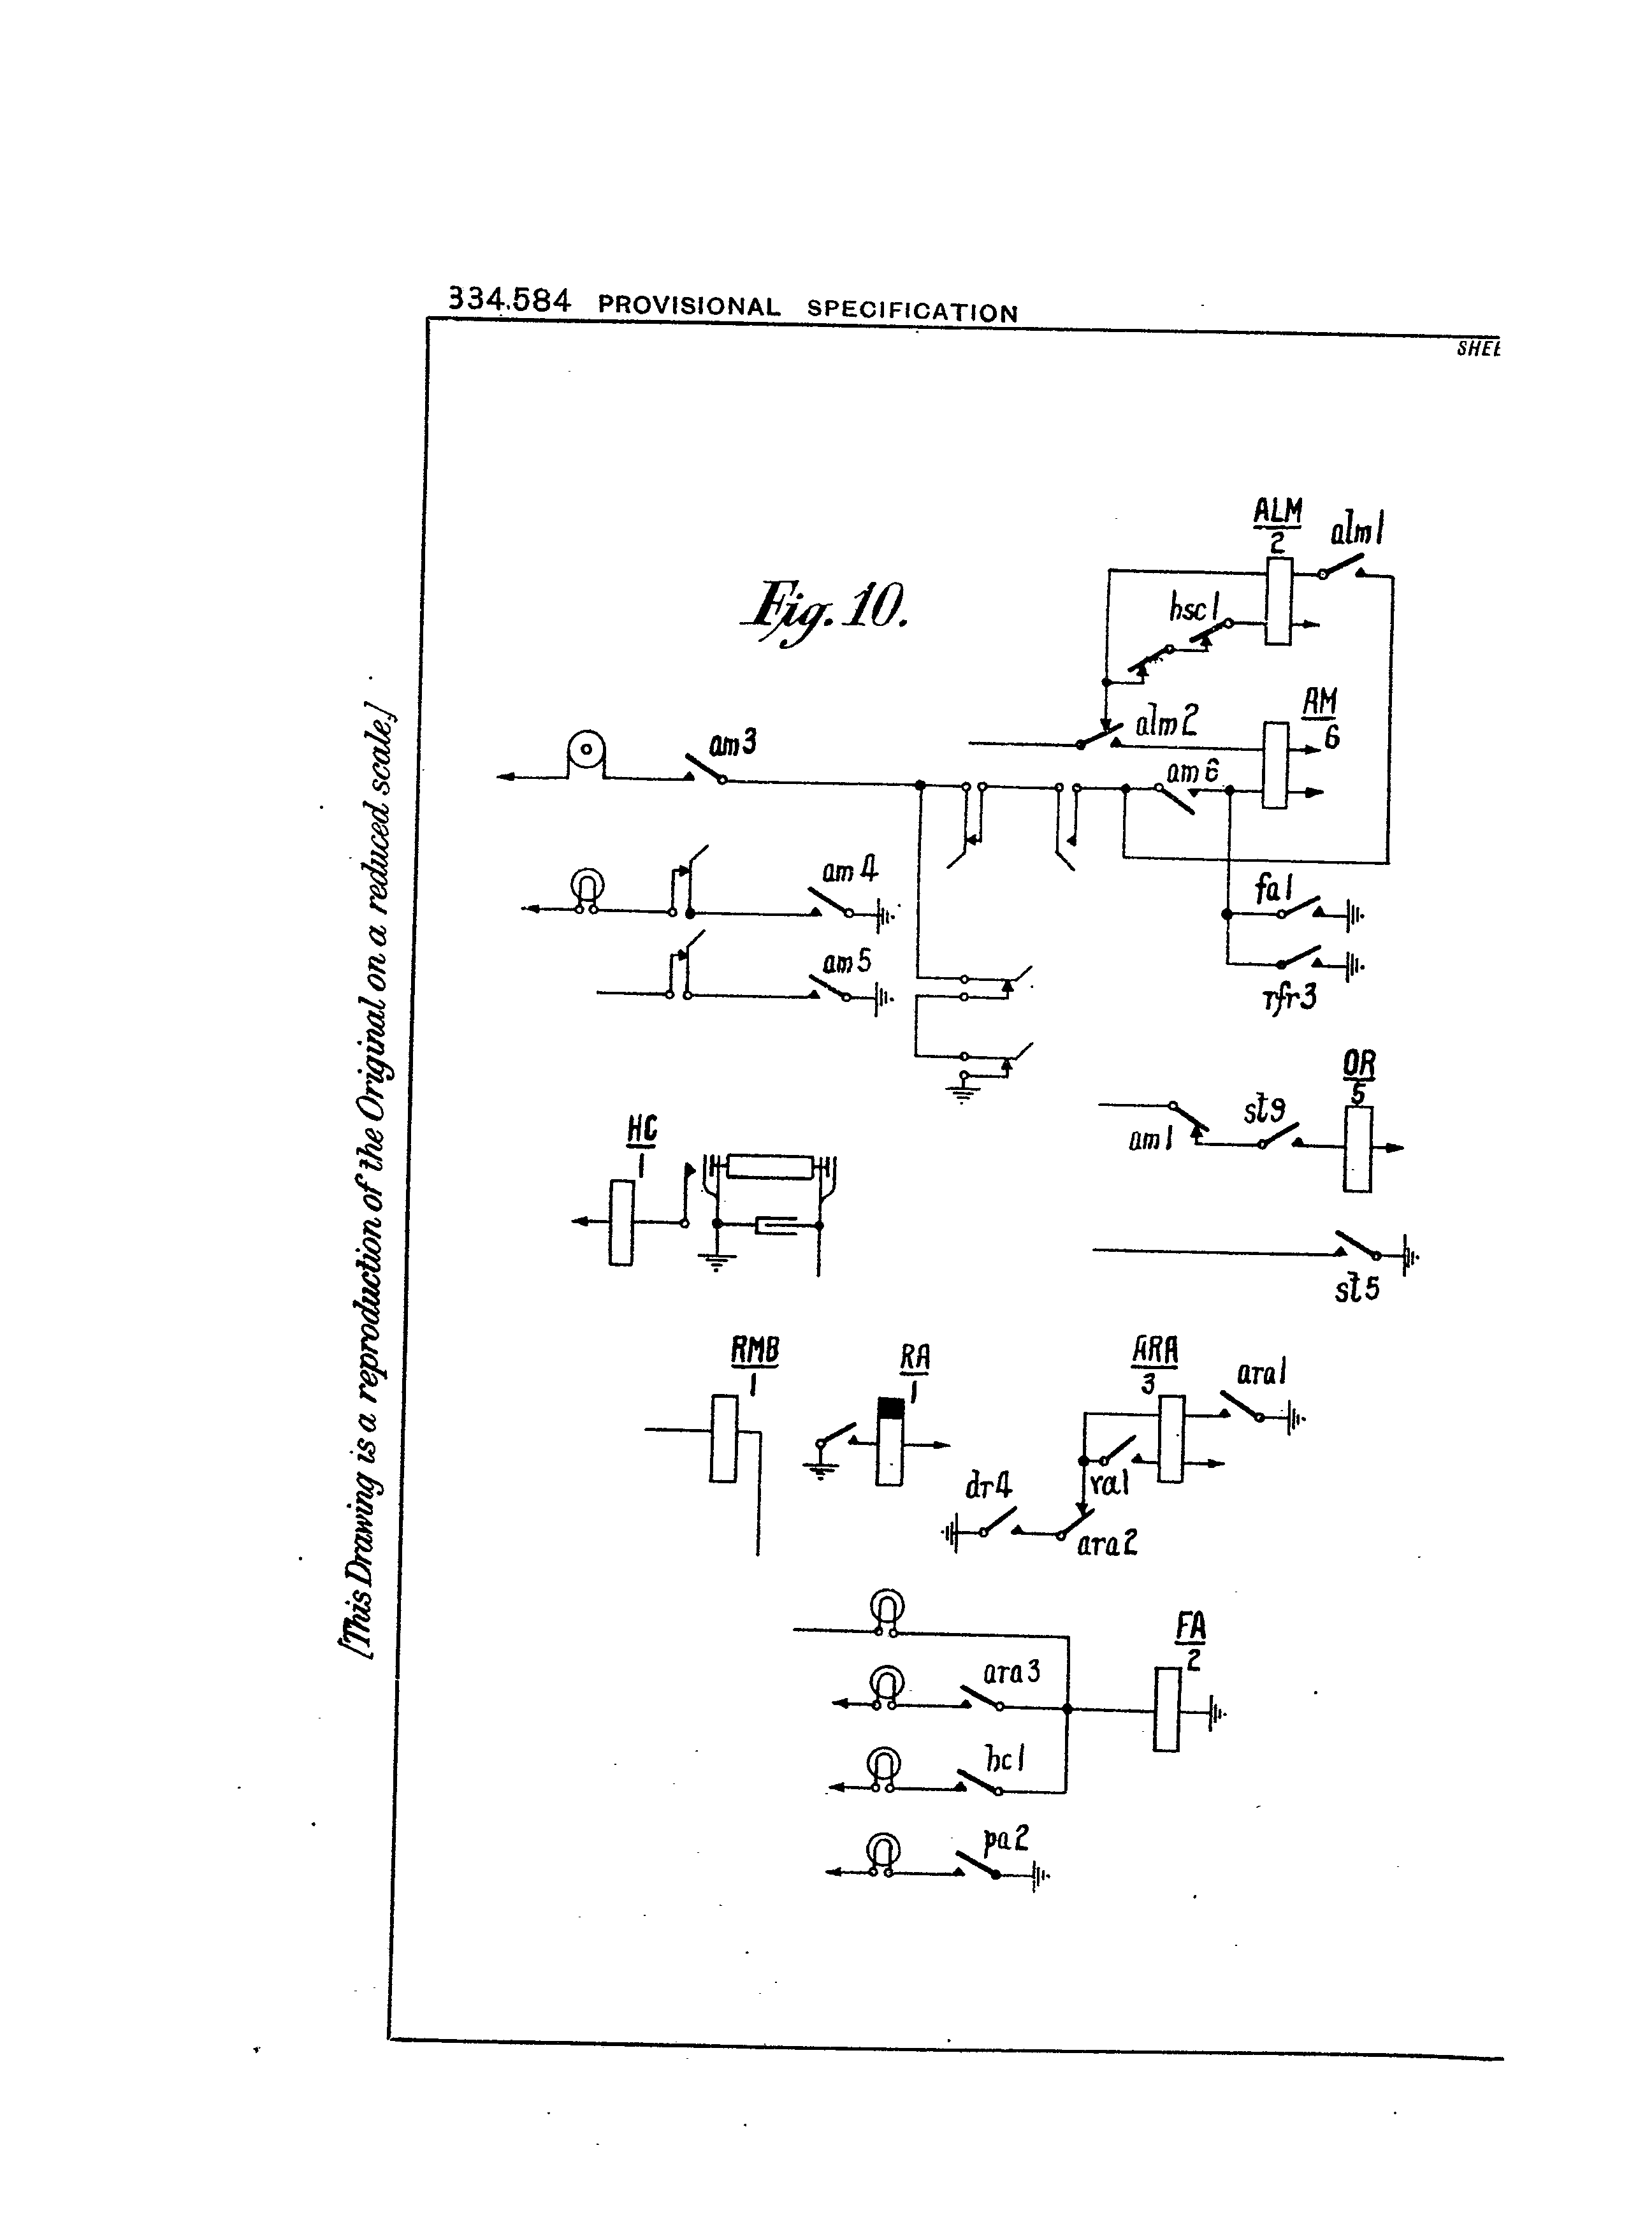 334.584 PROVISIONAL SPECIFICATION
SHEE
[This Drawing is a reproduction of the Original on a reduced scale.]
Fig. 10.
ALM
2
alm1
hsc1
AM
6
alm2
am3
am6
am4
fa1
am5
rfr3
OR
5
st9
am1
HC
1
st5
RMB
1
RA
1
ARA
3
ara1
ra1
dr4
ara2
FA
2
ara3
hc1
pa2